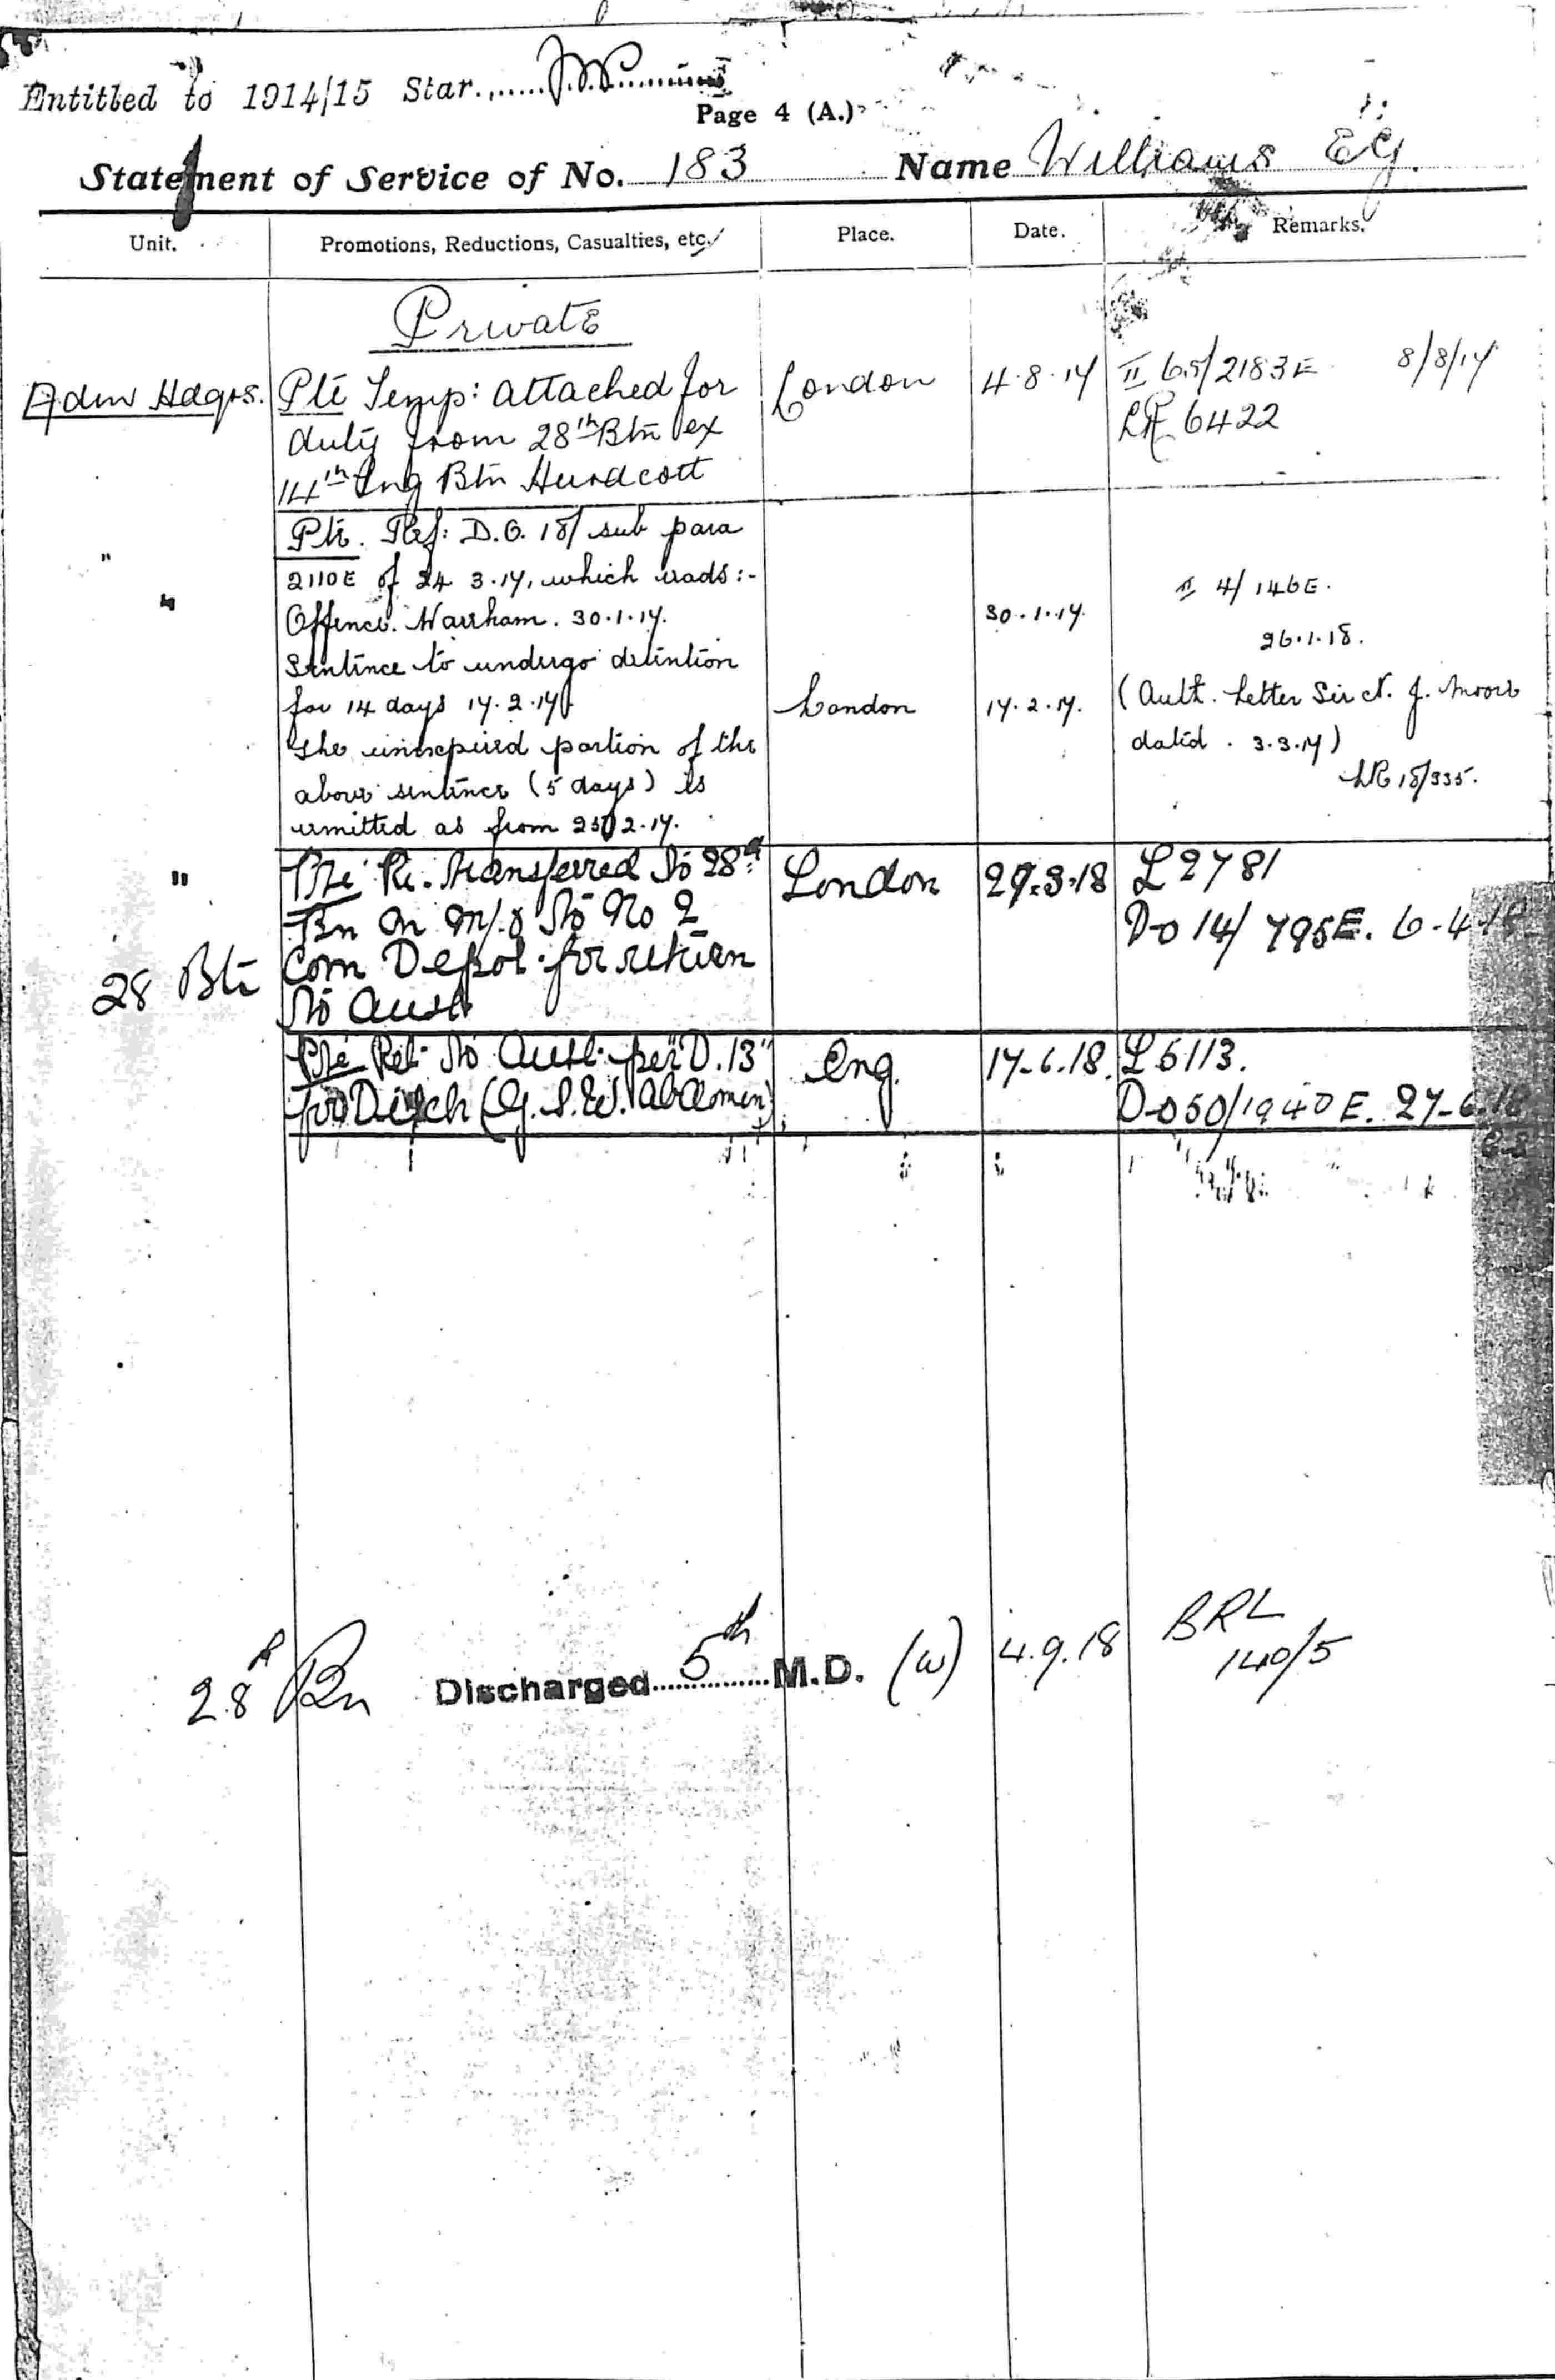 Entitled to 1914/15 Star
Page 4 (A.)
Statement of Service of No. 183 Name Williams E G.
Unit. Promotions, Reductions, Casualties, etc. Place. Date. Remarks.
Private
Adm Hdqrs. Pte Temp: attached for London 4.8.17 II 65/2183E 8/8/17
duty from 28th Btn ex LR 6422
14th Tng Btn Hurdcott
" Pte. Ref: D.O. 18/ sub para
2110E of 24 3.17, which reads:- II 4/146E.
" Offence. Wareham. 30.1.17. 30.1.17. 26.1.18.
Sentence to undergo detention
for 14 days 17.2.17 London 17.2.17. (Auth. Letter Sir N. J. Moore
The unexpired portion of the dated. 3.3.17)
above sentence (5 days) is LR 18/335.
remitted as from 25 2.17.
" Pte Re. transferred to 28th London 27.3.18 L2781
Bn on m/o to No 2 D-O 14/795E. 6-4-18
28 Btn Com Depot for return
to Aust
Pte Ret. to Aust. per "D.13" Eng. 17-6.18. L5113.
for Disch (G.S.W. Abdomen) D-O 50/1940E. 27-6.18
28th Bn Discharged 5th M.D. (W) 4.9.18 BRL
140/5